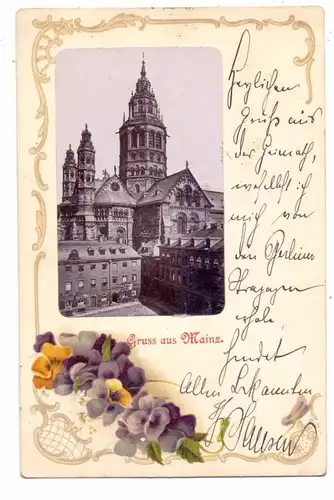 Gruss aus Mainz.
Herzlichen
Gruß aus
der Heimath,
woselbst ich
mich von
den Berliner
Strapazen
erhole,
sendet
Allen Bekannten